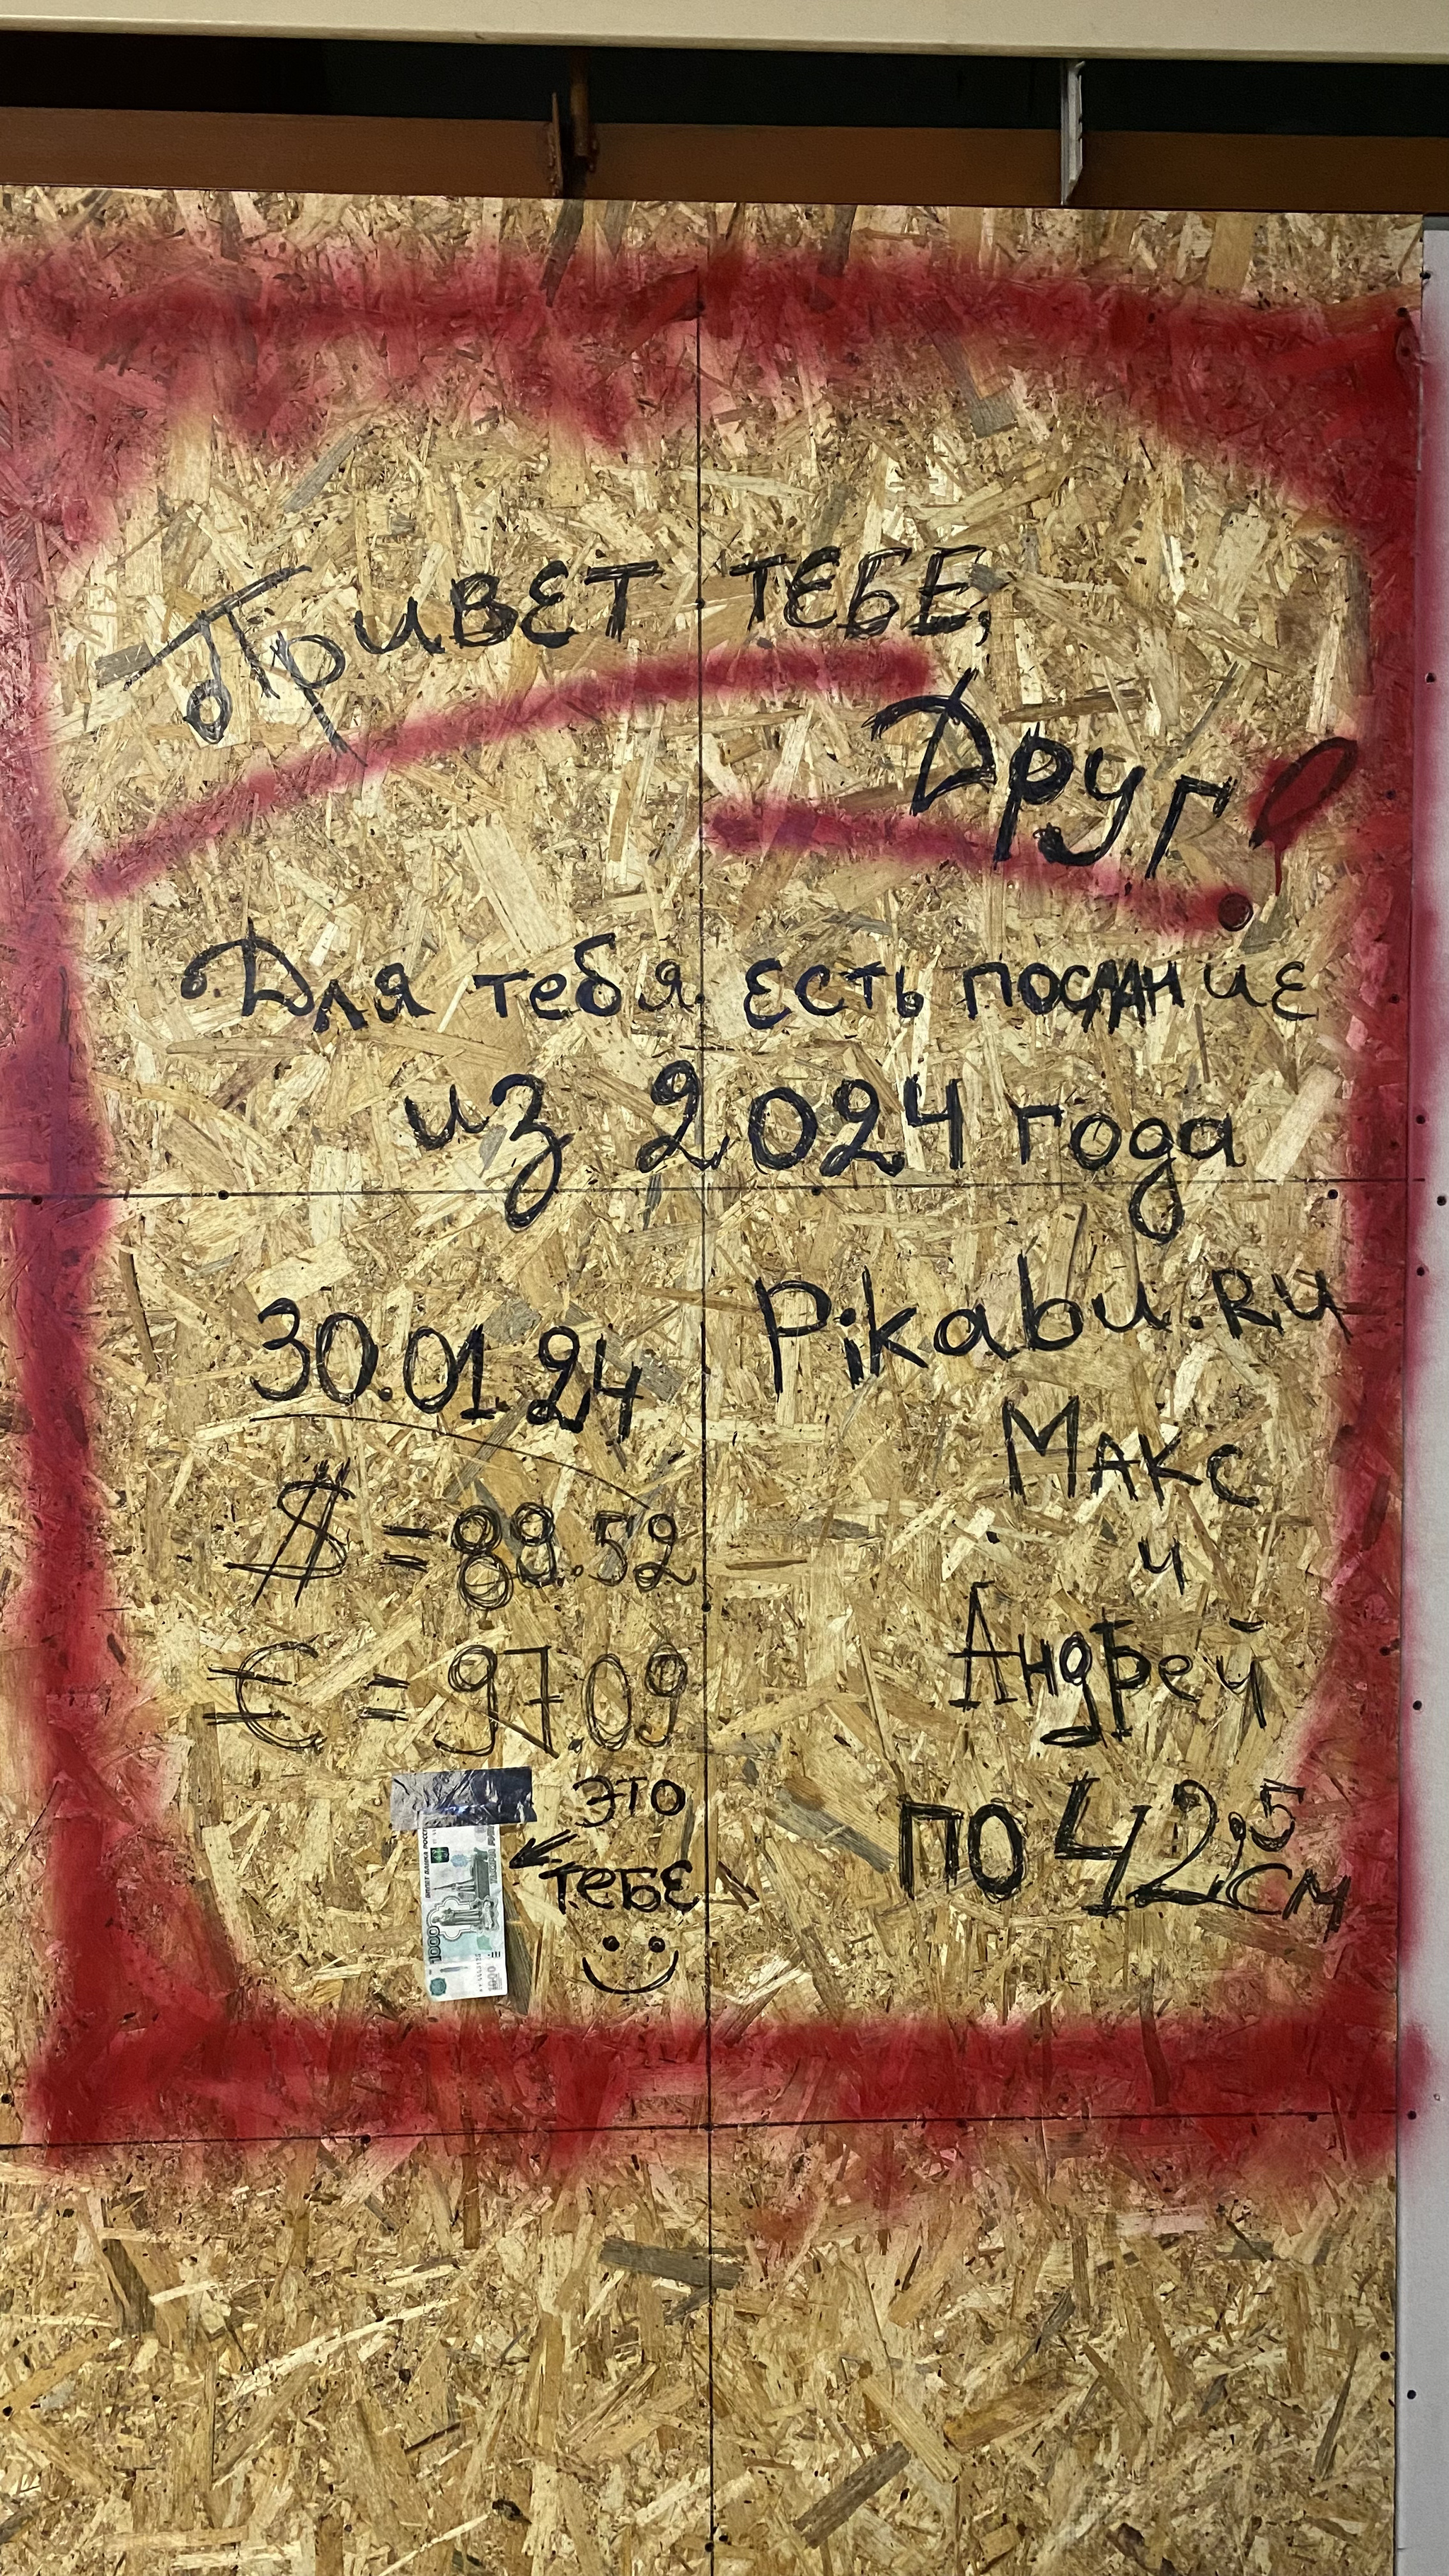 Привет ТЕБЕ,
Друг!
Для тебя есть послание
из 2024 года
30.01.24
$ = 89.52
€ = 97.09
это
тебе
Pikabu.RU
Макс
и
Андрей
по 42,5 см
1000